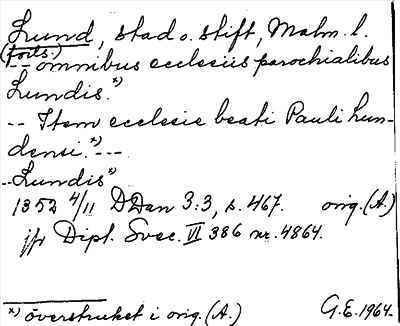 Lund, stad o. stift, Malm. l.
(forts.)
-- omnibus ecclesiis parochialibus
Lundis.*)
-- Item ecclesie beati Pauli Lun-
densi.*) ---
--Lundis*)
1352 4/11 DDan 3:3, s. 467. orig. (A.)
jfr Dipl. Svec. VI 386 nr. 4864.
*) överstruket i orig. (A.) G.E. 1964.